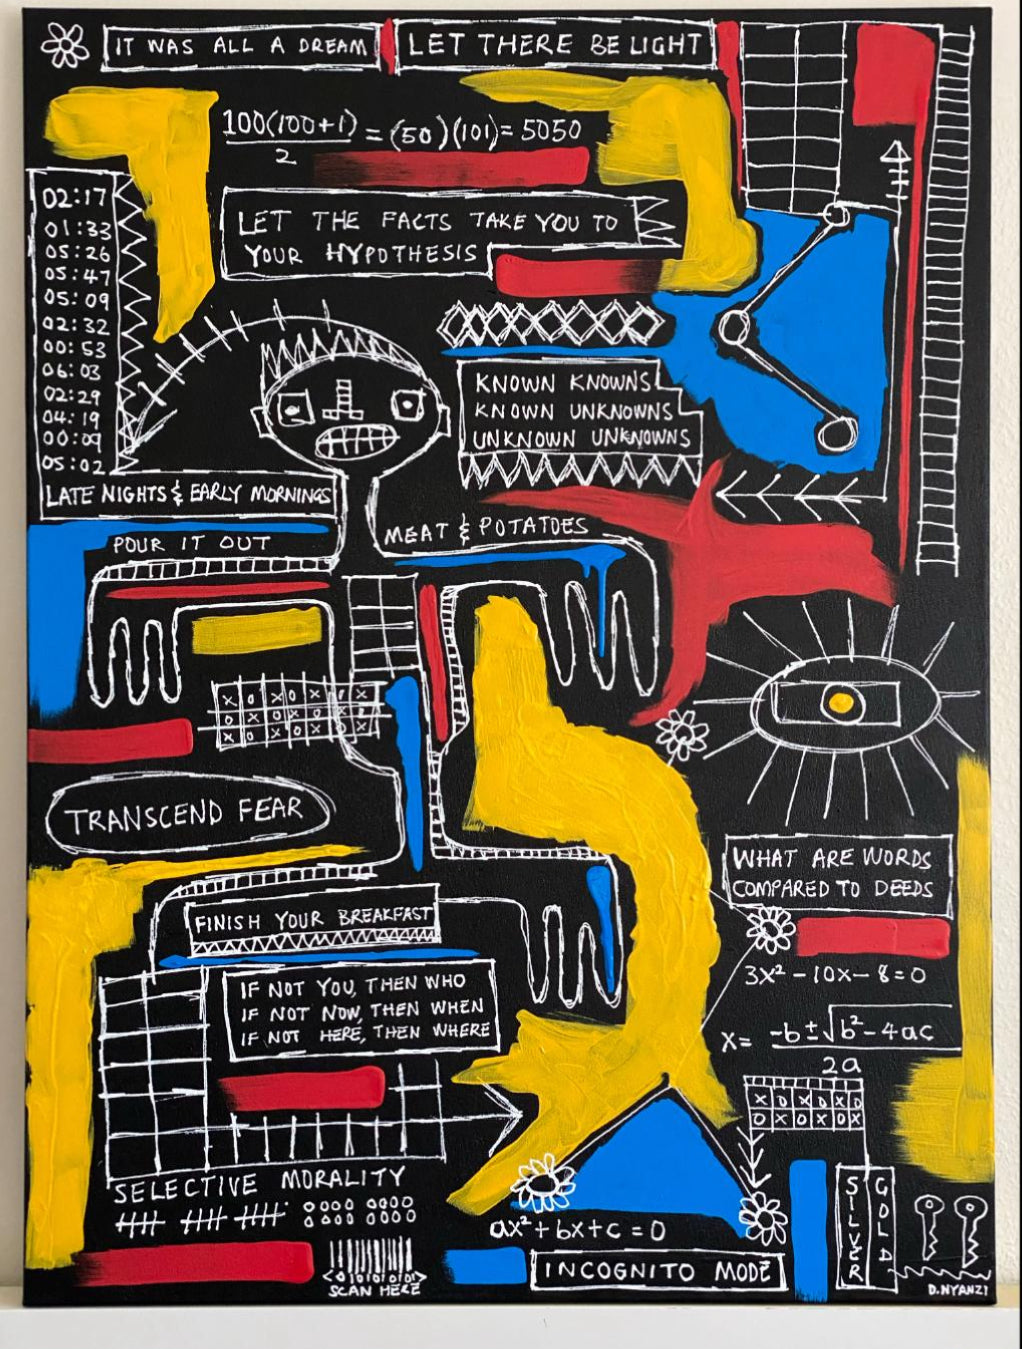 IT WAS ALL A DREAM
LET THERE BE LIGHT
100(100+1)/2 = (50)(101) = 5050
02:17
01:33
05:26
05:47
05:09
02:32
00:53
06:03
02:29
04:19
00:09
05:02
LET THE FACTS TAKE YOU TO
YOUR HYPOTHESIS
KNOWN KNOWNS
KNOWN UNKNOWNS
UNKNOWN UNKNOWNS
LATE NIGHTS & EARLY MORNINGS
POUR IT OUT
MEAT & POTATOES
X O X O X I X
O X O X O X O
X O X O X O X
TRANSCEND FEAR
WHAT ARE WORDS
COMPARED TO DEEDS
FINISH YOUR BREAKFAST
3x² - 10x - 8 = 0
IF NOT YOU, THEN WHO
IF NOT NOW, THEN WHEN
IF NOT HERE, THEN WHERE
x = -b ± √b² - 4ac
2a
X O X O X O
O X O X O X
SELECTIVE MORALITY
SILVER
GOLD
ax² + bx + c = 0
INCOGNITO MODE
<01010101>
SCAN HERE
D.NYANZI